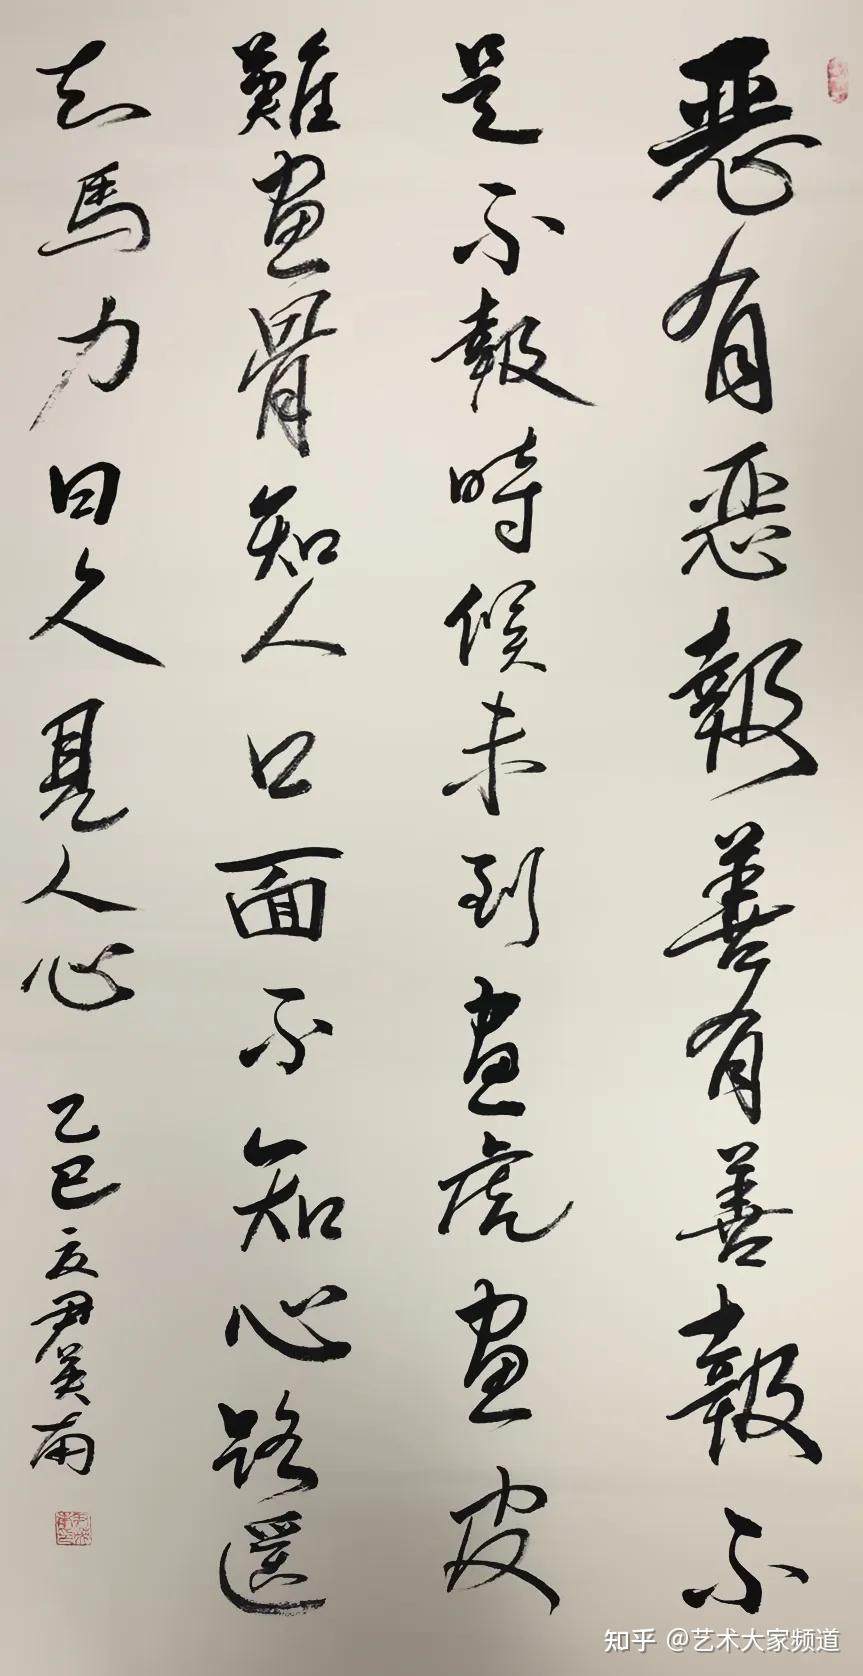 惡有惡報善有善報不
是不報時候未到畫虎畫皮
難畫骨知人口面不知心路遙
知馬力日久見人心 乙巳夏尹美南
知乎 @艺术大家频道